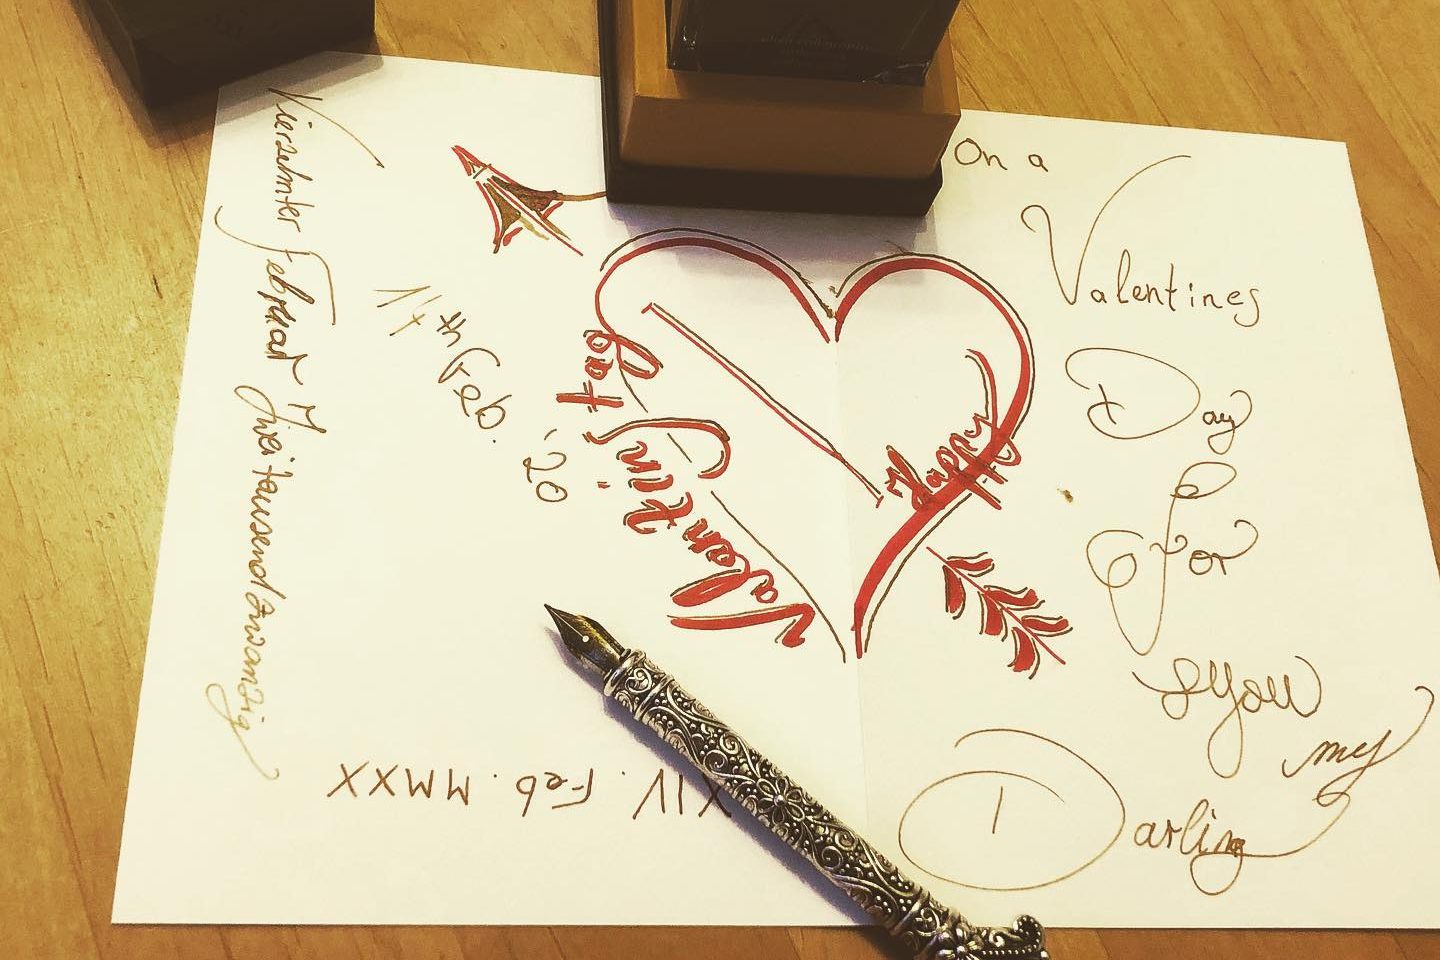 Vierzehnter Februar Zweitausendzwanzig
14th Feb. '20
Happy
Valentinstag
XIV. Feb. MMXX
On a
Valentines
Day
For
you
my
Darling